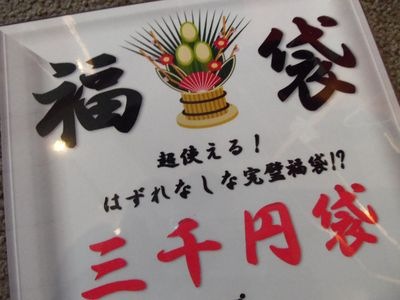 福袋
超使える！
はずれなしな完璧福袋!?
三千円袋